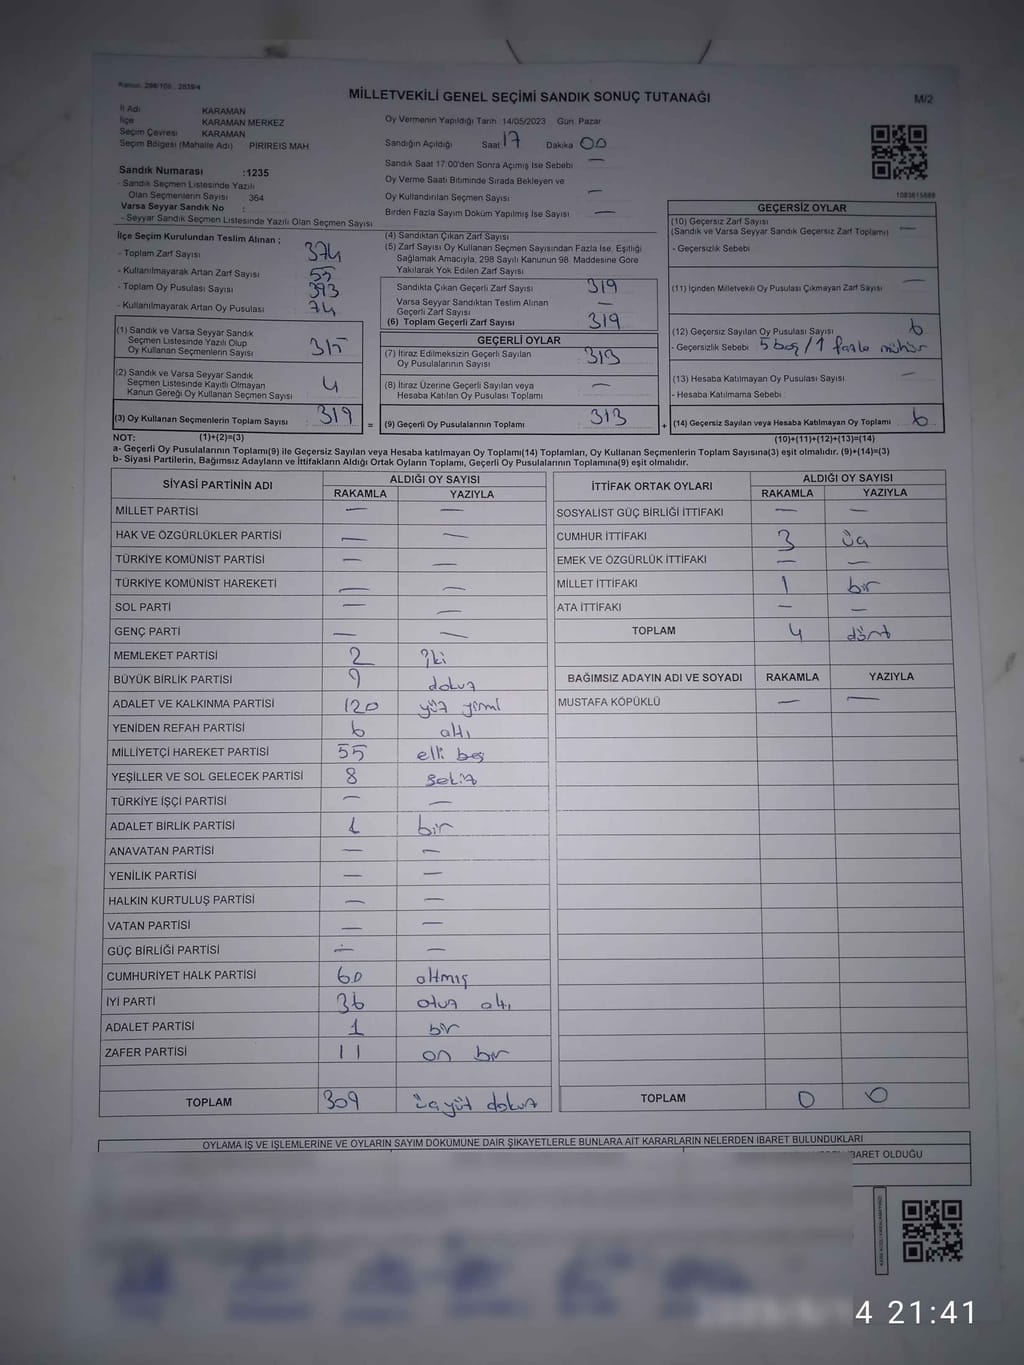 Kanun: 298/105 , 2839/4
MİLLETVEKİLİ GENEL SEÇİMİ SANDIK SONUÇ TUTANAĞI
M/2
İl Adı KARAMAN
İlçe KARAMAN MERKEZ
Seçim Çevresi KARAMAN
Seçim Bölgesi (Mahalle Adı) PİRİREİS MAH
Sandık Numarası :1235
- Sandık Seçmen Listesinde Yazılı
Olan Seçmenlerin Sayısı 364
Varsa Seyyar Sandık No :
- Seyyar Sandık Seçmen Listesinde Yazılı Olan Seçmen Sayısı
Oy Vermenin Yapıldığı Tarih :14/05/2023 Gün: Pazar
Sandığın Açıldığı Saat 17 Dakika 00
Sandık Saat 17:00'den Sonra Açımış İse Sebebi —
Oy Verme Saati Bitiminde Sırada Bekleyen ve
Oy Kullandırılan Seçmen Sayısı —
Birden Fazla Sayım Döküm Yapılmış İse Sayısı —
1083615888
İlçe Seçim Kurulundan Teslim Alınan ;
- Toplam Zarf Sayısı 374
- Kullanılmayarak Artan Zarf Sayısı 55
- Toplam Oy Pusulası Sayısı 393
- Kullanılmayarak Artan Oy Pusulası 74
(1) Sandık ve Varsa Seyyar Sandık
Seçmen Listesinde Yazılı Olup
Oy Kullanan Seçmenlerin Sayısı 315
(2) Sandık ve Varsa Seyyar Sandık
Seçmen Listesinde Kayıtlı Olmayan
Kanun Gereği Oy Kullanan Seçmen Sayısı 4
(3) Oy Kullanan Seçmenlerin Toplam Sayısı 319 =
(4) Sandıktan Çıkan Zarf Sayısı
(5) Zarf Sayısı Oy Kullanan Seçmen Sayısından Fazla İse, Eşitliği
Sağlamak Amacıyla, 298 Sayılı Kanunun 98. Maddesine Göre
Yakılarak Yok Edilen Zarf Sayısı
Sandıkta Çıkan Geçerli Zarf Sayısı 319
Varsa Seyyar Sandıktan Teslim Alınan
Geçerli Zarf Sayısı —
(6) Toplam Geçerli Zarf Sayısı 319
GEÇERLİ OYLAR
(7) İtiraz Edilmeksizin Geçerli Sayılan
Oy Pusulalarının Sayısı 313
(8) İtiraz Üzerine Geçerli Sayılan veya
Hesaba Katılan Oy Pusulası Toplamı —
(9) Geçerli Oy Pusulalarının Toplamı 313 +
GEÇERSİZ OYLAR
(10) Geçersiz Zarf Sayısı
(Sandık ve Varsa Seyyar Sandık Geçersiz Zarf Toplamı) —
- Geçersizlik Sebebi :
(11) İçinden Milletvekili Oy Pusulası Çıkmayan Zarf Sayısı —
(12) Geçersiz Sayılan Oy Pusulası Sayısı 6
- Geçersizlik Sebebi 5 boş / 1 fazla mühür
(13) Hesaba Katılmayan Oy Pusulası Sayısı —
- Hesaba Katılmama Sebebi :
(14) Geçersiz Sayılan veya Hesaba Katılmayan Oy Toplamı 6
NOT: (1)+(2)=(3) (10)+(11)+(12)+(13)=(14)
a- Geçerli Oy Pusulalarının Toplamı(9) ile Geçersiz Sayılan veya Hesaba katılmayan Oy Toplamı(14) Toplamları, Oy Kullanan Seçmenlerin Toplam Sayısına(3) eşit olmalıdır. (9)+(14)=(3)
b- Siyasi Partilerin, Bağımsız Adayların ve İttifakların Aldığı Ortak Oyların Toplamı, Geçerli Oy Pusulalarının Toplamına(9) eşit olmalıdır.
SİYASİ PARTİNİN ADI ALDIĞI OY SAYISI
RAKAMLA YAZIYLA
MİLLET PARTİSİ — —
HAK VE ÖZGÜRLÜKLER PARTİSİ — —
TÜRKİYE KOMÜNİST PARTİSİ — —
TÜRKİYE KOMÜNİST HAREKETİ — —
SOL PARTİ — —
GENÇ PARTİ — —
MEMLEKET PARTİSİ 2 iki
BÜYÜK BİRLİK PARTİSİ 9 dokuz
ADALET VE KALKINMA PARTİSİ 120 yüz yirmi
YENİDEN REFAH PARTİSİ 6 altı
MİLLİYETÇİ HAREKET PARTİSİ 55 elli beş
YEŞİLLER VE SOL GELECEK PARTİSİ 8 sekiz
TÜRKİYE İŞÇİ PARTİSİ — —
ADALET BİRLİK PARTİSİ 1 bir
ANAVATAN PARTİSİ — —
YENİLİK PARTİSİ — —
HALKIN KURTULUŞ PARTİSİ — —
VATAN PARTİSİ — —
GÜÇ BİRLİĞİ PARTİSİ — —
CUMHURİYET HALK PARTİSİ 60 altmış
İYİ PARTİ 36 otuz altı
ADALET PARTİSİ 1 bir
ZAFER PARTİSİ 11 on bir
TOPLAM 309 üçyüz dokuz
İTTİFAK ORTAK OYLARI ALDIĞI OY SAYISI
RAKAMLA YAZIYLA
SOSYALİST GÜÇ BİRLİĞİ İTTİFAKI — —
CUMHUR İTTİFAKI 3 üç
EMEK VE ÖZGÜRLÜK İTTİFAKI — —
MİLLET İTTİFAKI 1 bir
ATA İTTİFAKI — —
TOPLAM 4 dört
BAĞIMSIZ ADAYIN ADI VE SOYADI RAKAMLA YAZIYLA
MUSTAFA KÖPÜKLÜ — —
TOPLAM 0 0
OYLAMA İŞ VE İŞLEMLERİNE VE OYLARIN SAYIM DÖKÜMÜNE DAİR ŞİKAYETLERLE BUNLARA AİT KARARLARIN NELERDEN İBARET BULUNDUKLARI
İBARET OLDUĞU
4 21:41